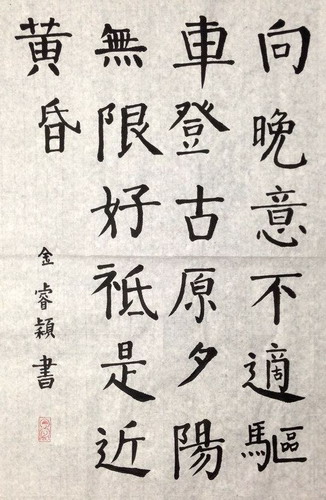 向晚意不適驅
車登古原夕陽
無限好祗是近
黃昏
金睿穎書